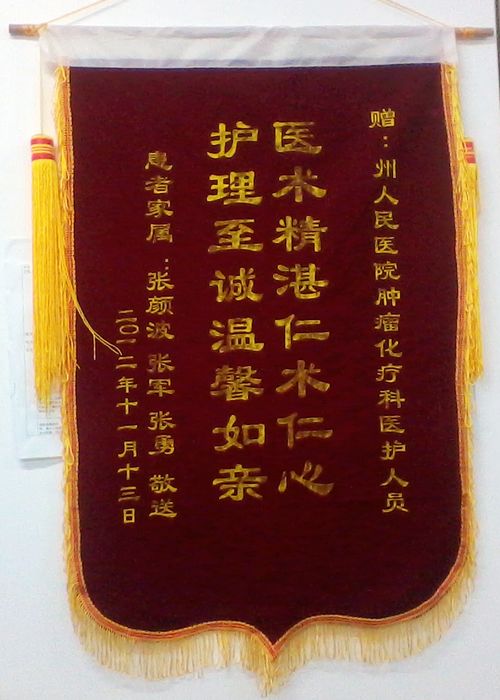 赠：州人民医院肿瘤化疗科医护人员
医术精湛仁术仁心
护理至诚温馨如亲
患者家属：张颜波 张军 张勇 敬送
二〇一二年十一月十三日